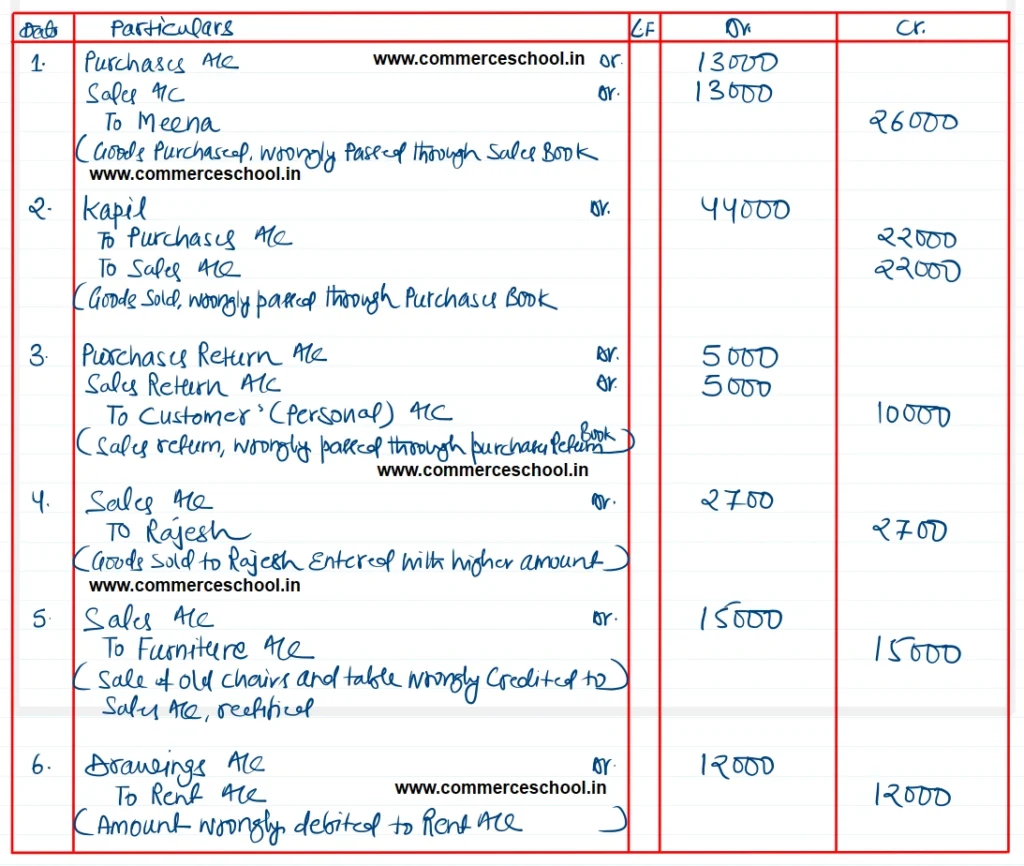 Date Particulars L.F Dr. Cr.
1. Purchases A/C www.commerceschool.in Dr. 13000
Sales A/C Dr. 13000
To Meena 26000
(Goods Purchased, wrongly Passed through Sales Book
www.commerceschool.in
2. Kapil Dr. 44000
To Purchases A/C 22000
To Sales A/C 22000
(Goods Sold, wrongly passed through Purchases Book
3. Purchases Return A/C Dr. 5000
Sales Return A/C Dr. 5000
To Customer's (Personal) A/C 10000
(Sales return, wrongly passed through purchases Return Book)
www.commerceschool.in
4. Sales A/C Dr. 2700
To Rajesh 2700
(Goods Sold to Rajesh Entered with higher amount)
www.commerceschool.in
5. Sales A/C Dr. 15000
To Furniture A/C 15000
(Sale of old chairs and table wrongly Credited to)
Sales A/C, rectified
6. Drawings A/C Dr. 12000
To Rent A/C www.commerceschool.in 12000
(Amount wrongly debited to Rent A/C)